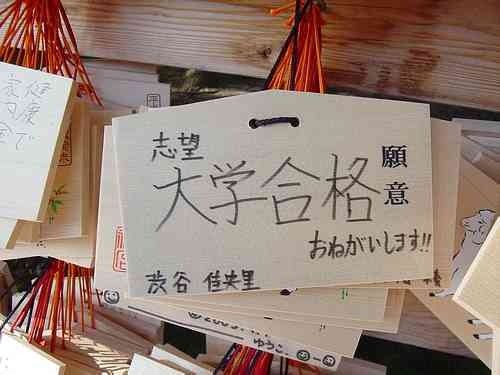 志望
大学合格
願意
おねがいします!!
渋谷 佳央里
健康で
ゆうこ